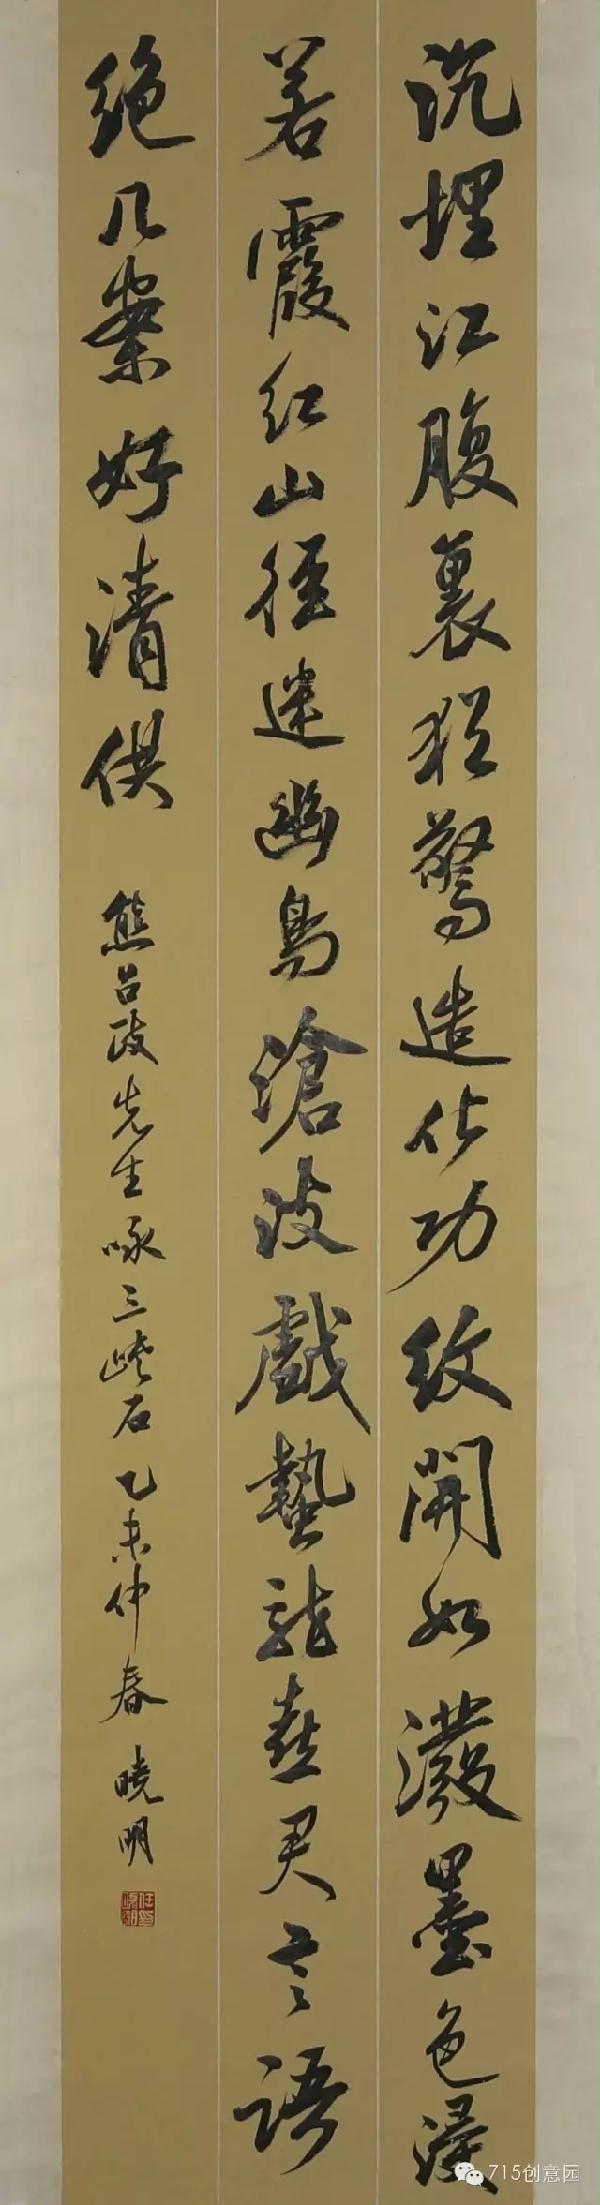 沉埋江腹裏犹驚造化功紋開如潑墨色浸
若霞红山径迷幽鳥滄波戲蟄龍喜君言語
絶几案好清供
熊召政先生咏三峡石乙未仲春 曉明
715创意园